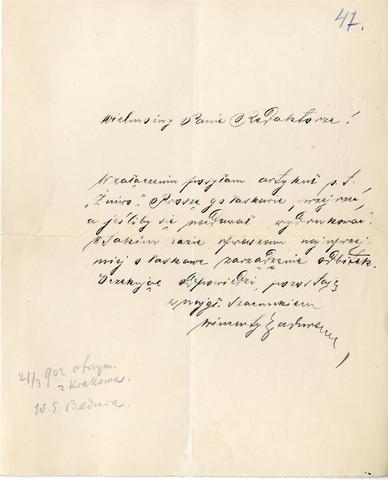 47.
Wielmożny Panie Redaktorze!
W załączeniu posyłam artykuł p. t.
"Żniwo". Proszę go łaskawie przejrzeć,
a jeśliby się nadawał wydrukować.
W takim razie upraszam najuprzej-
miej o łaskawe zarządzenie odbitek.
Oczekując odpowiedzi, pozostaję
z szacunkiem
21/3 902 otrzym.
z Krakowa.
Badura.